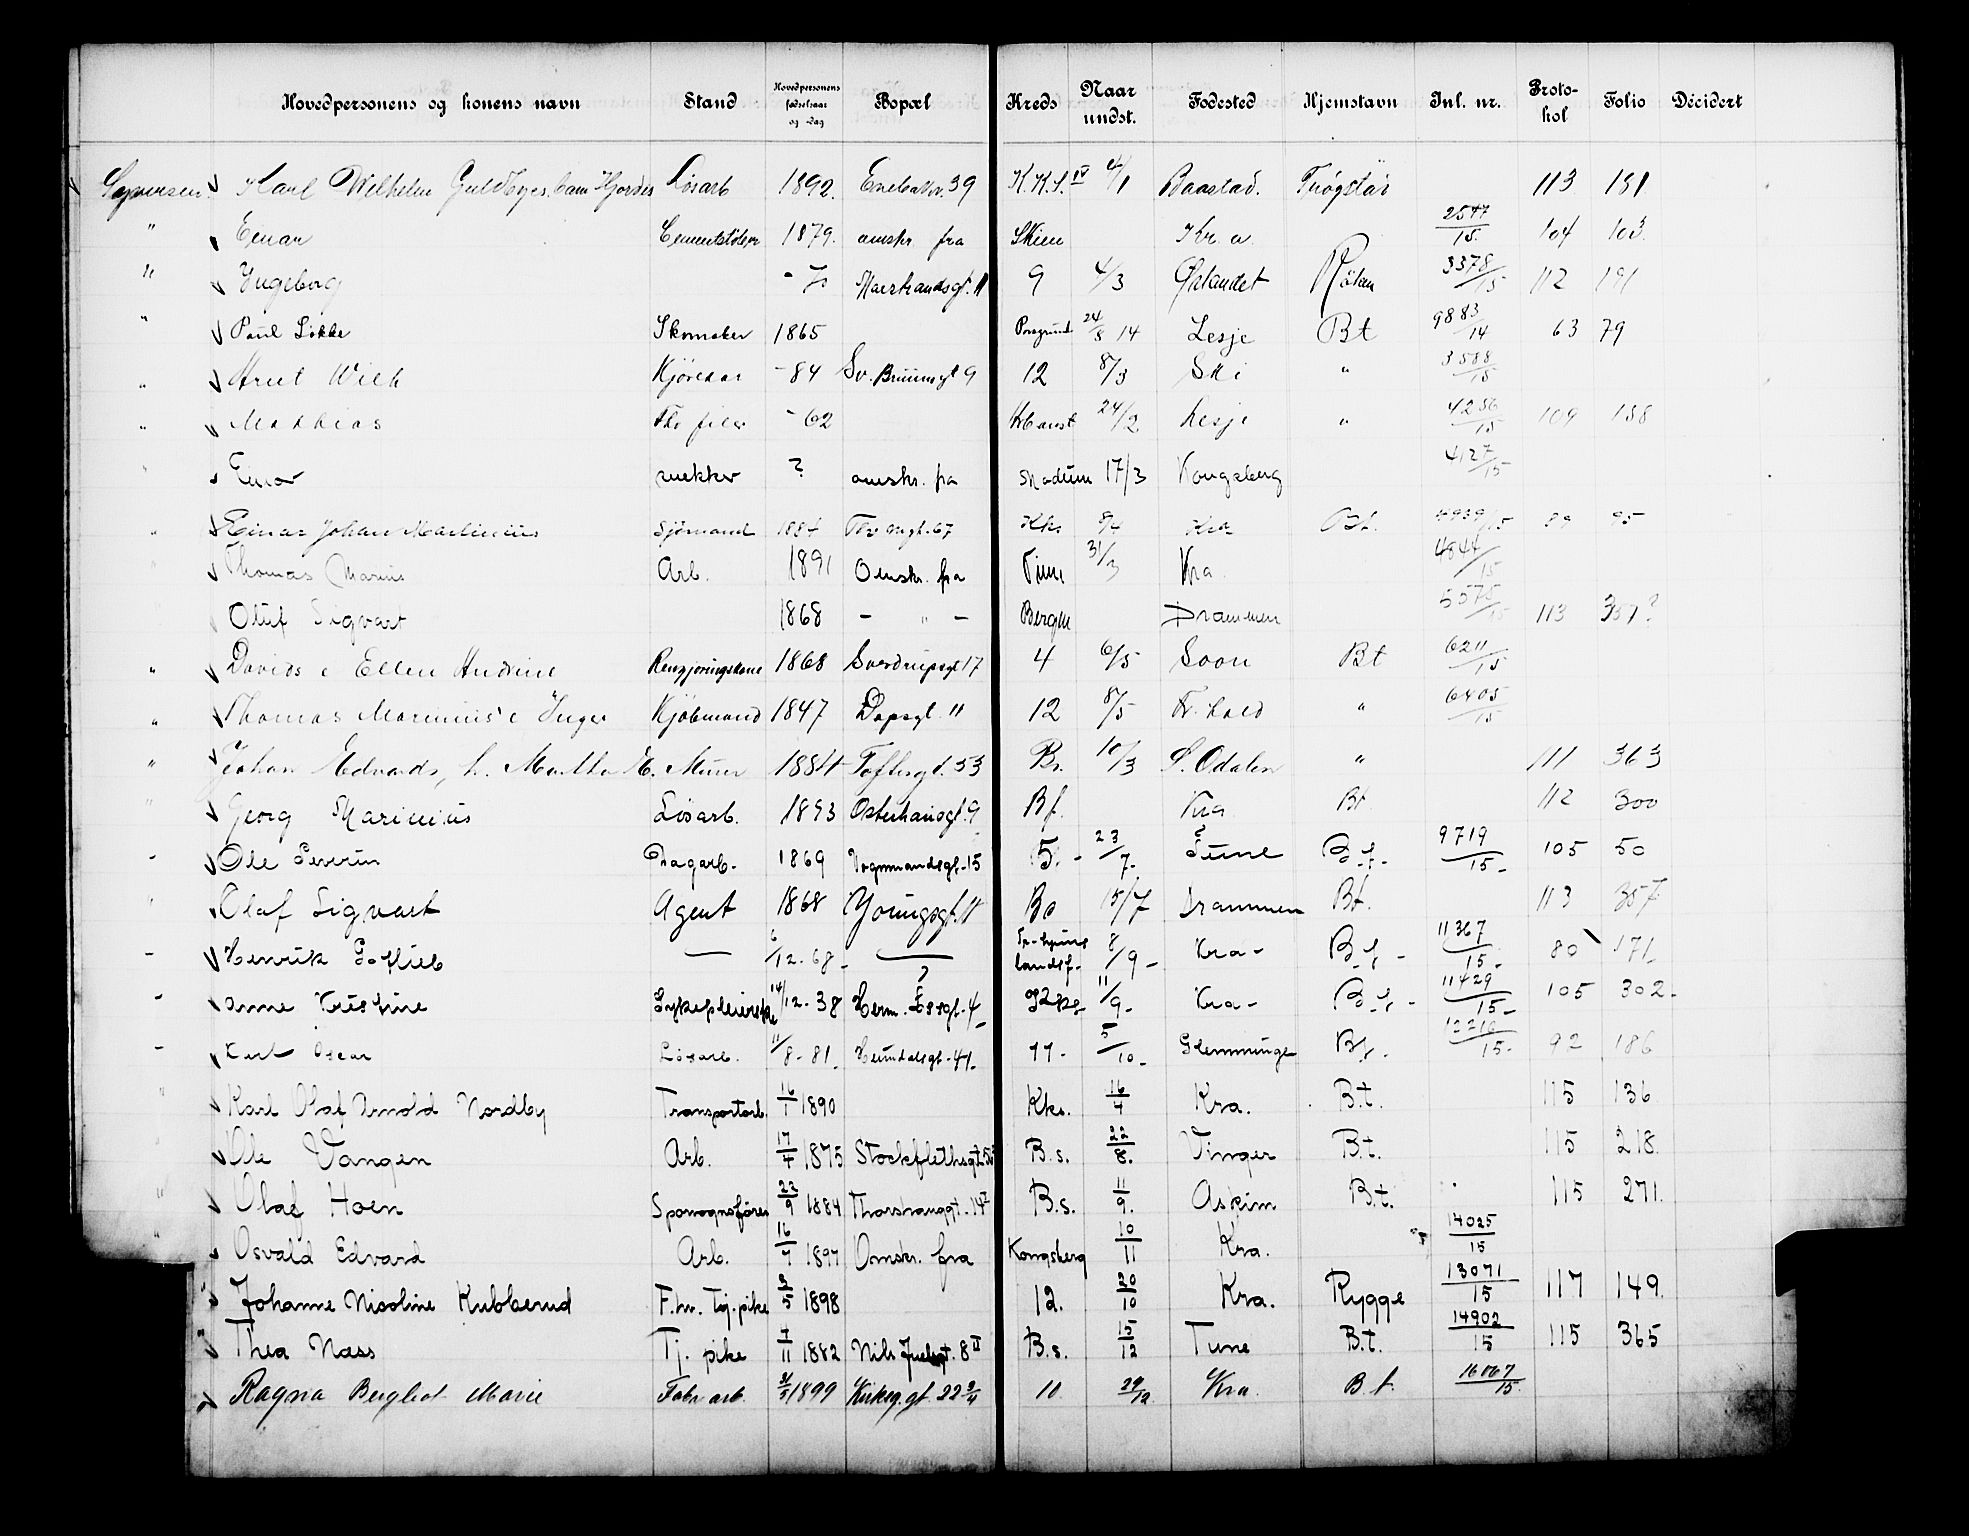 Hovedpersonens og konens navn Stand Hovedpersonens fødselsaar og -dag Bopæl Kreds Naar undst. Fødested Hjemstavn Jnl. nr. Protokol Folio Décidert
Karl Wilhelm Løsarb 1892. 39 K.K.S. IV 4/1 Baastad. Trøgstad 113 181
" Einar 1879. omskr. fra Skien Kr. a. 2547/15. 104 103
" Ingeborg - 7. 11 9 4/3 Ørlandet 3378/15 112 191
" Paul Løkke Skomaker 1865 Porsgrund 24/8 14 Lesje Bt 9883/14 63 79
" Wilh Kjørekar -84 Sv. Bruunsgt 9 12 8/3 Ski " 3588/15
" Mathias -62 24/2 Lesje " 4256/15 109 158
" Einar ? omskr. fra Modum 17/3 Kongsberg 4127/15
" Einar Johan Martinius Sjømand 1884 67 Kks. 8/4 Kra Bt. 4939/15 89 95
" Thomas Marius Arb. 1891 Omskr. fra 31/3 Kra 4844/15
Oluf Sigvart 1868 - " - Bergen Drammen 5575/15 113 357?
" Davids e Ellen Andrine Rengjøringskone 1868 Sverdrupsgt 17 4 6/5 Soon Bt 6211/15
" Thomas Marinius' e Inger Kjøbmand 1847 Dopsgt. 11 12 8/5 Fr.hald " 6405/15
" Johan Edvards, h. Martha E. Murer 1884 Toftesgt. 53 Bs. 10/3 S. Odalen " 111 363
" Georg Marinius Løsarb. 1893 Osterhausgt. 9 Bf. Kra Bt. 112 300
- Ole Severin Dagarb. 1869 Vognmandsgt. 15 5. - 23/7. Tune B.t. 9719/15 105 50
" Olaf Sigvart Agent 1868 Youngsgt. 11 Bs 15/7 Drammen Bt. 113 357
- Henrik Gotlieb — 6/12. 68 - ? landsf. 8/9 - Kra - B.t. - 11367/15 80 171
- Anne Kristine Sykepleierske 14/12 - 38 Herm. Fossgt. 4 11/9 - Kra - B.t. - 11429/15 105 302.
- Karl Oscar Løsarb. 11/8 - 81. Heimdalsgt. - 41. 11. 5/10 - Glemminge B.t. 12210/15 92 186
" Karl Olaf Arnold Nordby Transportarb. 16/1 1890 Kks. 16/4 Kra. B.t. 115 136
" Ole Vangen Arb. 17/4 1875 Stockflethsgt. B.s. 22/8. Vinger B.t. 115 218.
" Olaf Hoen Sporvognsfører 22/9 1884 B.s. 11/9. Askim B.t. 115 271.
" Osvald Edvard Arb. 1897 Omskr. fra Kongsberg 10/11 Kra. 14025/15
" Johanne Nicoline Kubberud F.hv. Tj. pike 1898 12. 20/10 Kra. Rygge 13071/15 117 149.
" Thea Næss Tj. pike 7/11 1882 Nils Juelsgt. 8 II B.s. 15/12 Tune B.t. 14902/15 115 365
" Ragna Bergliot Marie Fabr. arb. 1899 Kirkeg. gt. 22 10. 29/12. Kra. B.t. 16067/15.